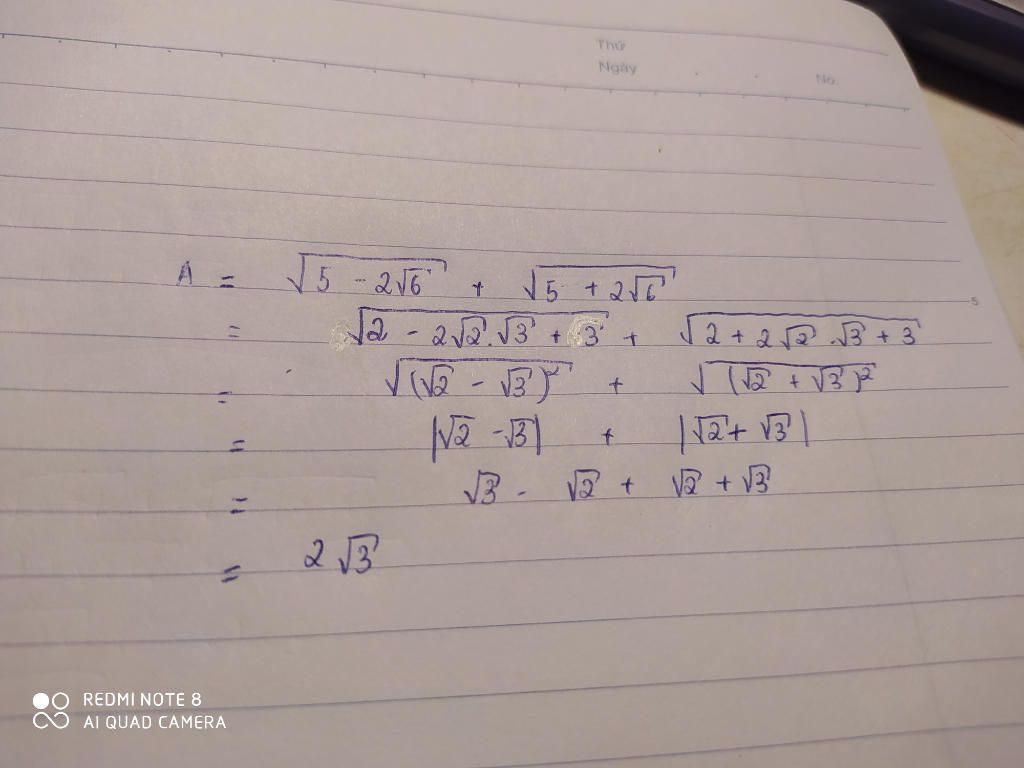 Thứ
Ngày
No.
A = √(5 - 2√6) + √(5 + 2√6)
5
= √(2 - 2√2.√3 + 3) + √(2 + 2√2.√3 + 3)
= √((√2 - √3)²) + √((√2 + √3)²)
= |√2 - √3| + |√2 + √3|
= √3 - √2 + √2 + √3
= 2√3
REDMI NOTE 8
AI QUAD CAMERA